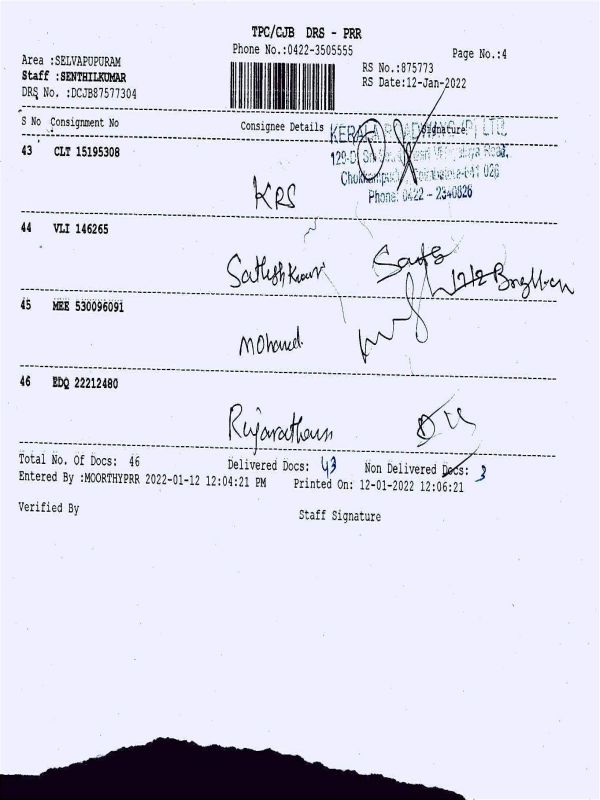 TPC/CJB DRS - PRR
Phone No.:0422-3505555
Page No.:4
Area :SELVAPUPURAM
Staff :SENTHILKUMAR
DRS No. :DCJB87577304
RS No.:875773
RS Date:12-Jan-2022
S No Consignment No Consignee Details Signature
KERALA ROADWAYS (P) LTD
43 CLT 15195308
Phone: 0422 - 2340826
KRS
44 VLI 146265
Sathish Kumar
45 MEE 530096091
Mohamed
46 EDQ 22212480
Total No. Of Docs: 46 Delivered Docs: 43 Non Delivered Docs: 3
Entered By :MOORTHYPRR 2022-01-12 12:04:21 PM Printed On: 12-01-2022 12:06:21
Verified By Staff Signature